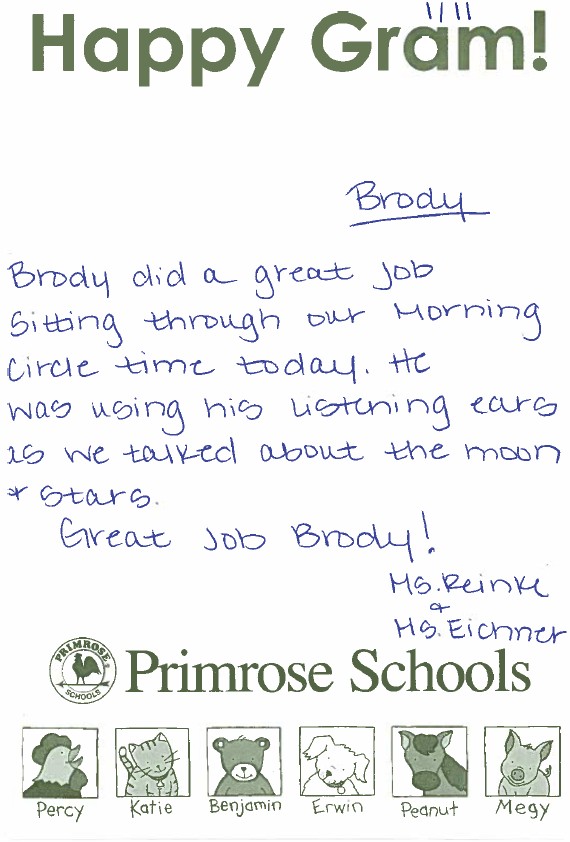 Happy Gram!
Brody
Brody did a great job
sitting through our Morning
Circle time today. He
was using his listening ears
as we talked about the moon
+ stars.
Great job Brody!
Ms. Reinke
+
Ms. Eichner
PRIMROSE SCHOOLS
Primrose Schools
Percy Katie Benjamin Erwin Peanut Megy